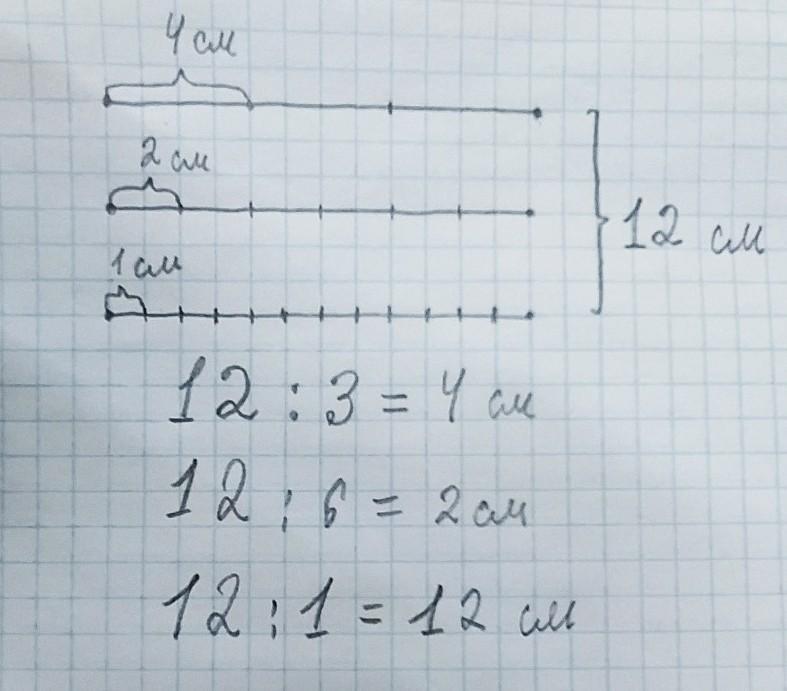 4 см
2 см
1 см
12 см
12 : 3 = 4 см
12 : 6 = 2 см
12 : 1 = 12 см